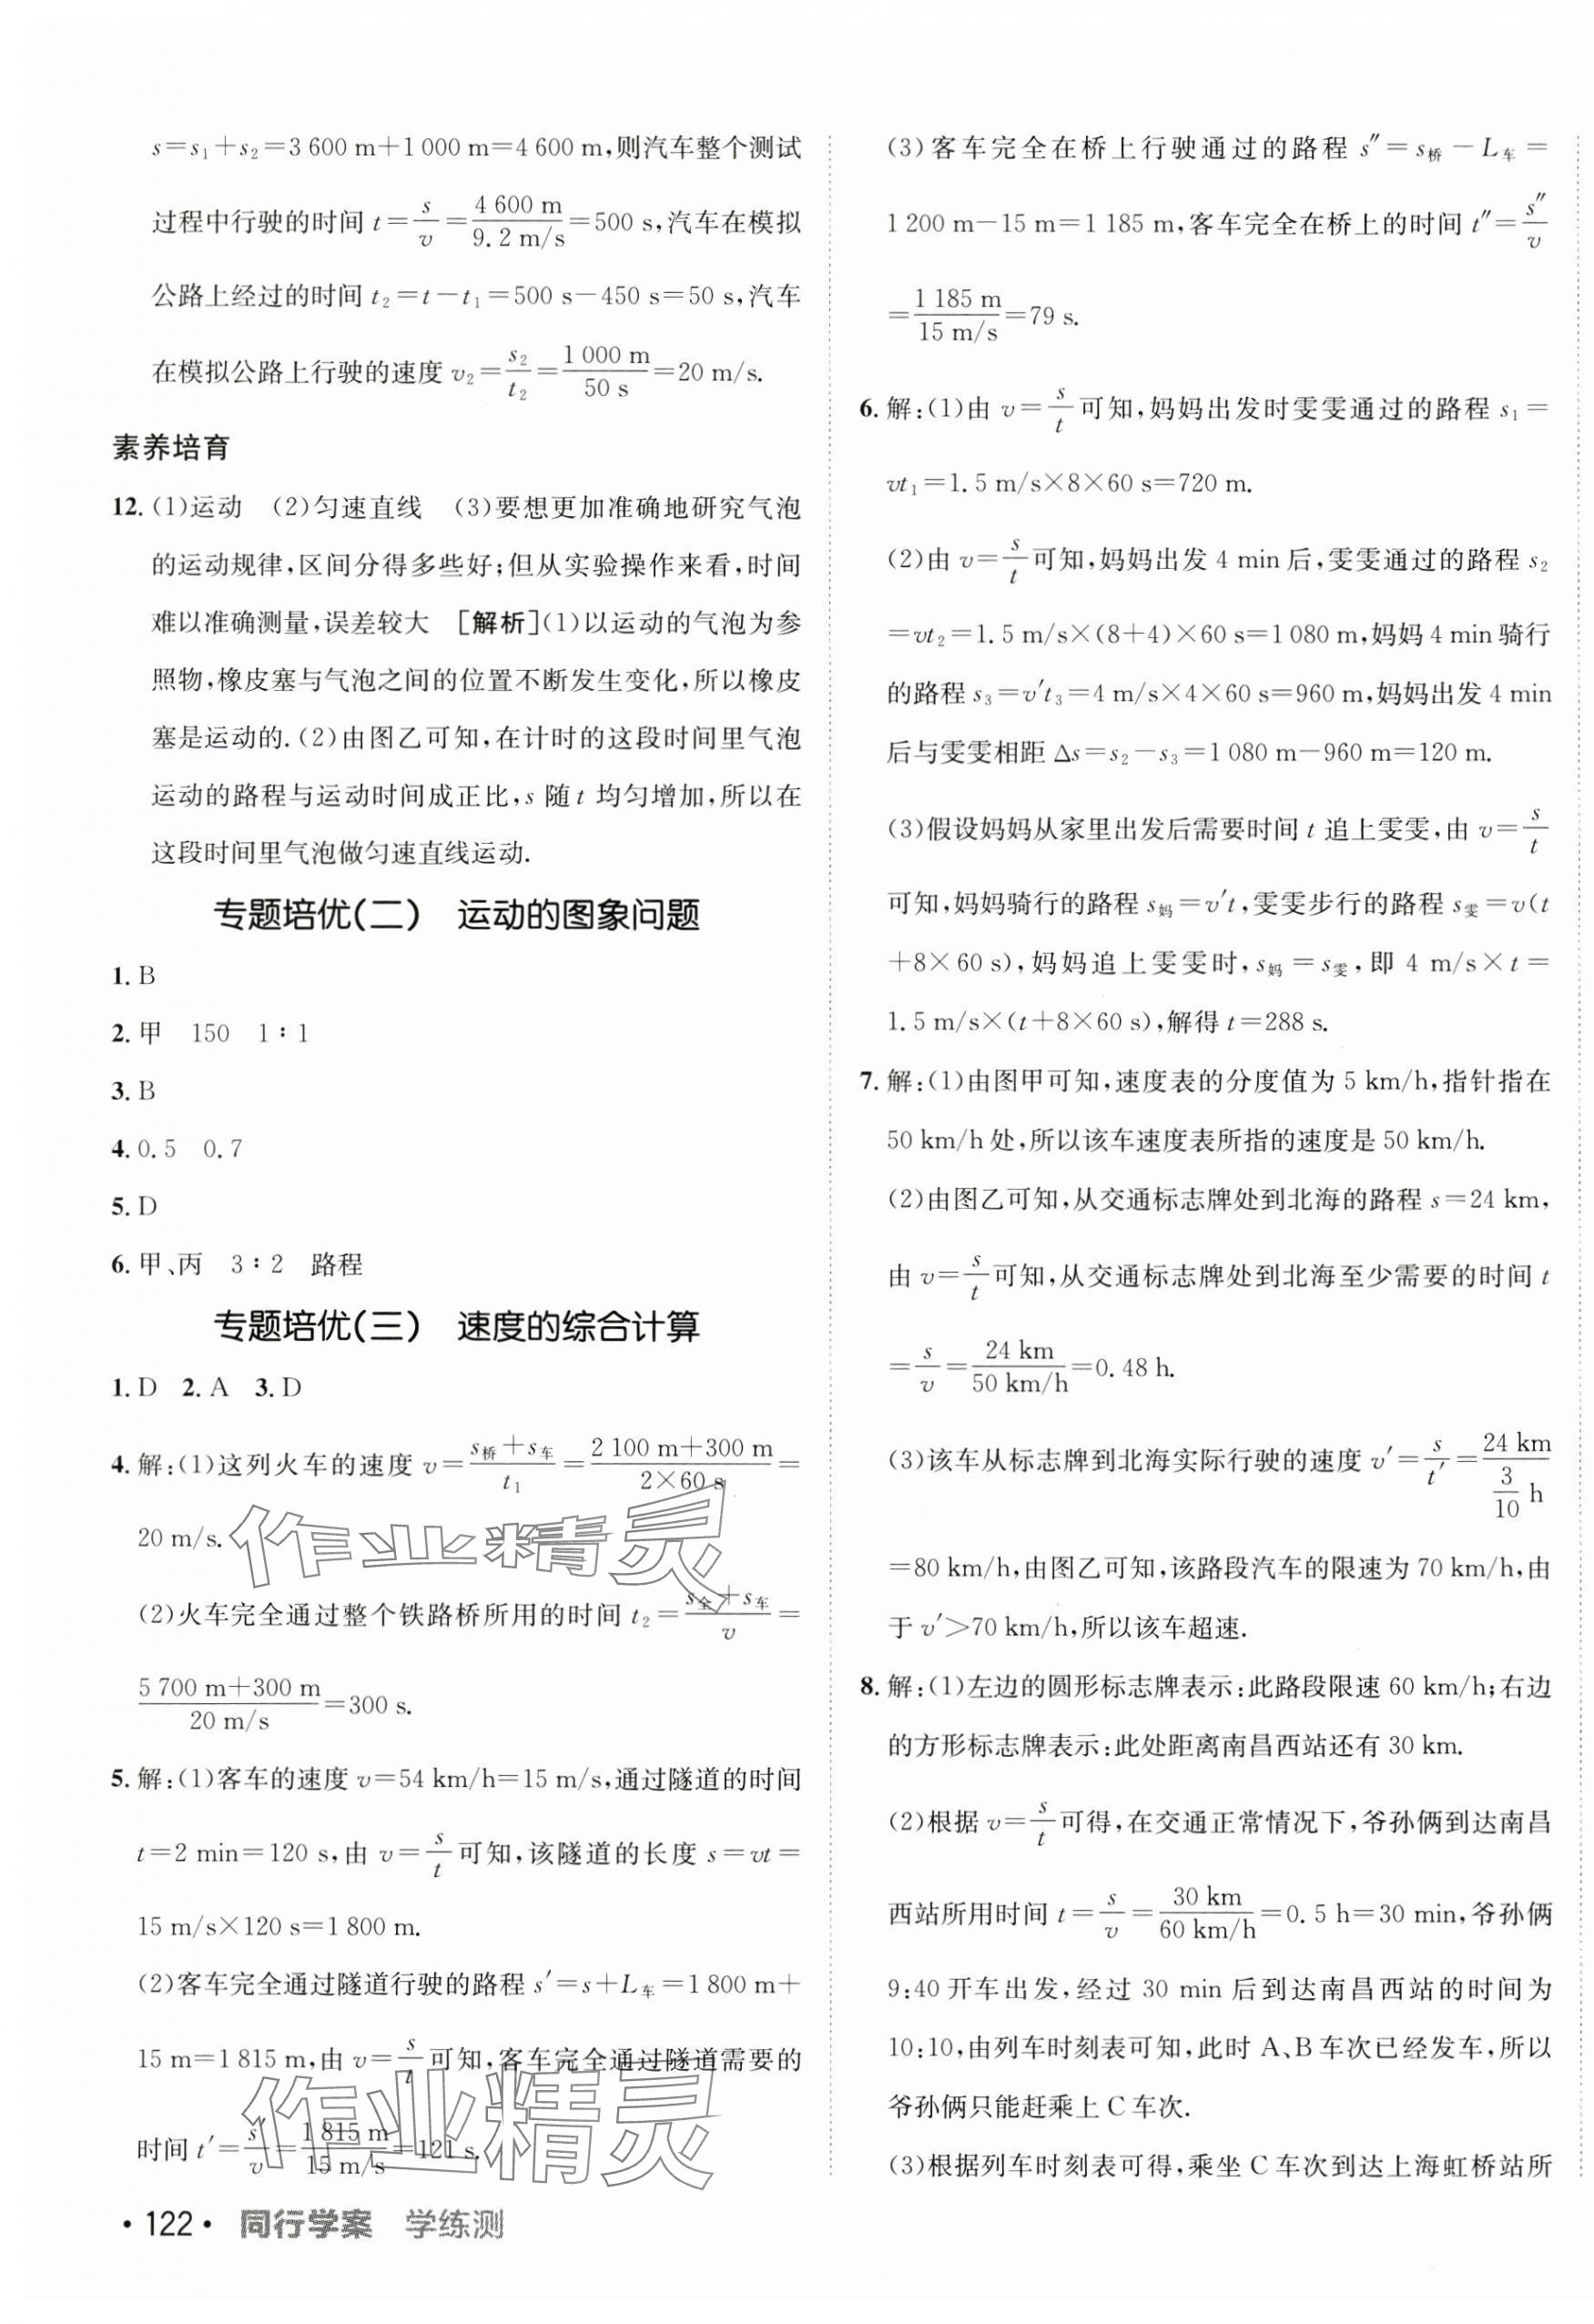 s=s₁+s₂=3 600 m+1 000 m=4 600 m,则汽车整个测试
过程中行驶的时间 t=s/v=4 600 m/9.2 m/s=500 s,汽车在模拟
公路上经过的时间 t₂=t-t₁=500 s-450 s=50 s,汽车
在模拟公路上行驶的速度 v₂=s₂/t₂=1 000 m/50 s=20 m/s.
素养培育
12.(1)运动 (2)匀速直线 (3)要想更加准确地研究气泡
的运动规律,区间分得多些好;但从实验操作来看,时间
难以准确测量,误差较大 [解析](1)以运动的气泡为参
照物,橡皮塞与气泡之间的位置不断发生变化,所以橡皮
塞是运动的.(2)由图乙可知,在计时的这段时间里气泡
运动的路程与运动时间成正比,s 随 t 均匀增加,所以在
这段时间里气泡做匀速直线运动.
专题培优(二) 运动的图象问题
1. B
2. 甲 150 1∶1
3. B
4. 0.5 0.7
5. D
6. 甲、丙 3∶2 路程
专题培优(三) 速度的综合计算
1. D 2. A 3. D
4. 解:(1)这列火车的速度 v=(s桥+s车)/t₁=(2 100 m+300 m)/(2×60 s)=
20 m/s.
(2)火车完全通过整个铁路桥所用的时间 t₂=(s全+s车)/v=
(5 700 m+300 m)/(20 m/s)=300 s.
5. 解:(1)客车的速度 v=54 km/h=15 m/s,通过隧道的时间
t=2 min=120 s,由 v=s/t可知,该隧道的长度 s=vt=
15 m/s×120 s=1 800 m.
(2)客车完全通过隧道行驶的路程 s′=s+L车=1 800 m+
15 m=1 815 m,由 v=s/t可知,客车完全通过隧道需要的
时间 t′=s′/v=1 815 m/15 m/s=121 s.
作业精灵
作业精灵
·122· 同行学案 学练测
(3)客车完全在桥上行驶通过的路程 s″=s桥-L车=
1 200 m-15 m=1 185 m,客车完全在桥上的时间 t″=s″/v
=1 185 m/15 m/s=79 s.
6. 解:(1)由 v=s/t可知,妈妈出发时雯雯通过的路程 s₁=
vt₁=1.5 m/s×8×60 s=720 m.
(2)由 v=s/t可知,妈妈出发 4 min 后,雯雯通过的路程 s₂
=vt₂=1.5 m/s×(8+4)×60 s=1 080 m,妈妈 4 min 骑行
的路程 s₃=v′t₃=4 m/s×4×60 s=960 m,妈妈出发 4 min
后与雯雯相距 Δs=s₂-s₃=1 080 m-960 m=120 m.
(3)假设妈妈从家里出发后需要时间 t 追上雯雯,由 v=s/t
可知,妈妈骑行的路程 s妈=v′t,雯雯步行的路程 s雯=v(t
+8×60 s),妈妈追上雯雯时,s妈=s雯,即 4 m/s×t=
1.5 m/s×(t+8×60 s),解得 t=288 s.
7. 解:(1)由图甲可知,速度表的分度值为 5 km/h,指针指在
50 km/h 处,所以该车速度表所指的速度是 50 km/h.
(2)由图乙可知,从交通标志牌处到北海的路程 s=24 km,
由 v=s/t可知,从交通标志牌处到北海至少需要的时间 t
=s/v=24 km/50 km/h=0.48 h.
(3)该车从标志牌到北海实际行驶的速度 v′=s/t′=24 km/(3/10 h)
=80 km/h,由图乙可知,该路段汽车的限速为 70 km/h,由
于 v′>70 km/h,所以该车超速.
8. 解:(1)左边的圆形标志牌表示:此路段限速 60 km/h;右边
的方形标志牌表示:此处距离南昌西站还有 30 km.
(2)根据 v=s/t可得,在交通正常情况下,爷孙俩到达南昌
西站所用时间 t=s/v=30 km/60 km/h=0.5 h=30 min,爷孙俩
9:40 开车出发,经过 30 min 后到达南昌西站的时间为
10:10,由列车时刻表可知,此时 A、B 车次已经发车,所以
爷孙俩只能赶乘上 C 车次.
(3)根据列车时刻表可得,乘坐 C 车次到达上海虹桥站所